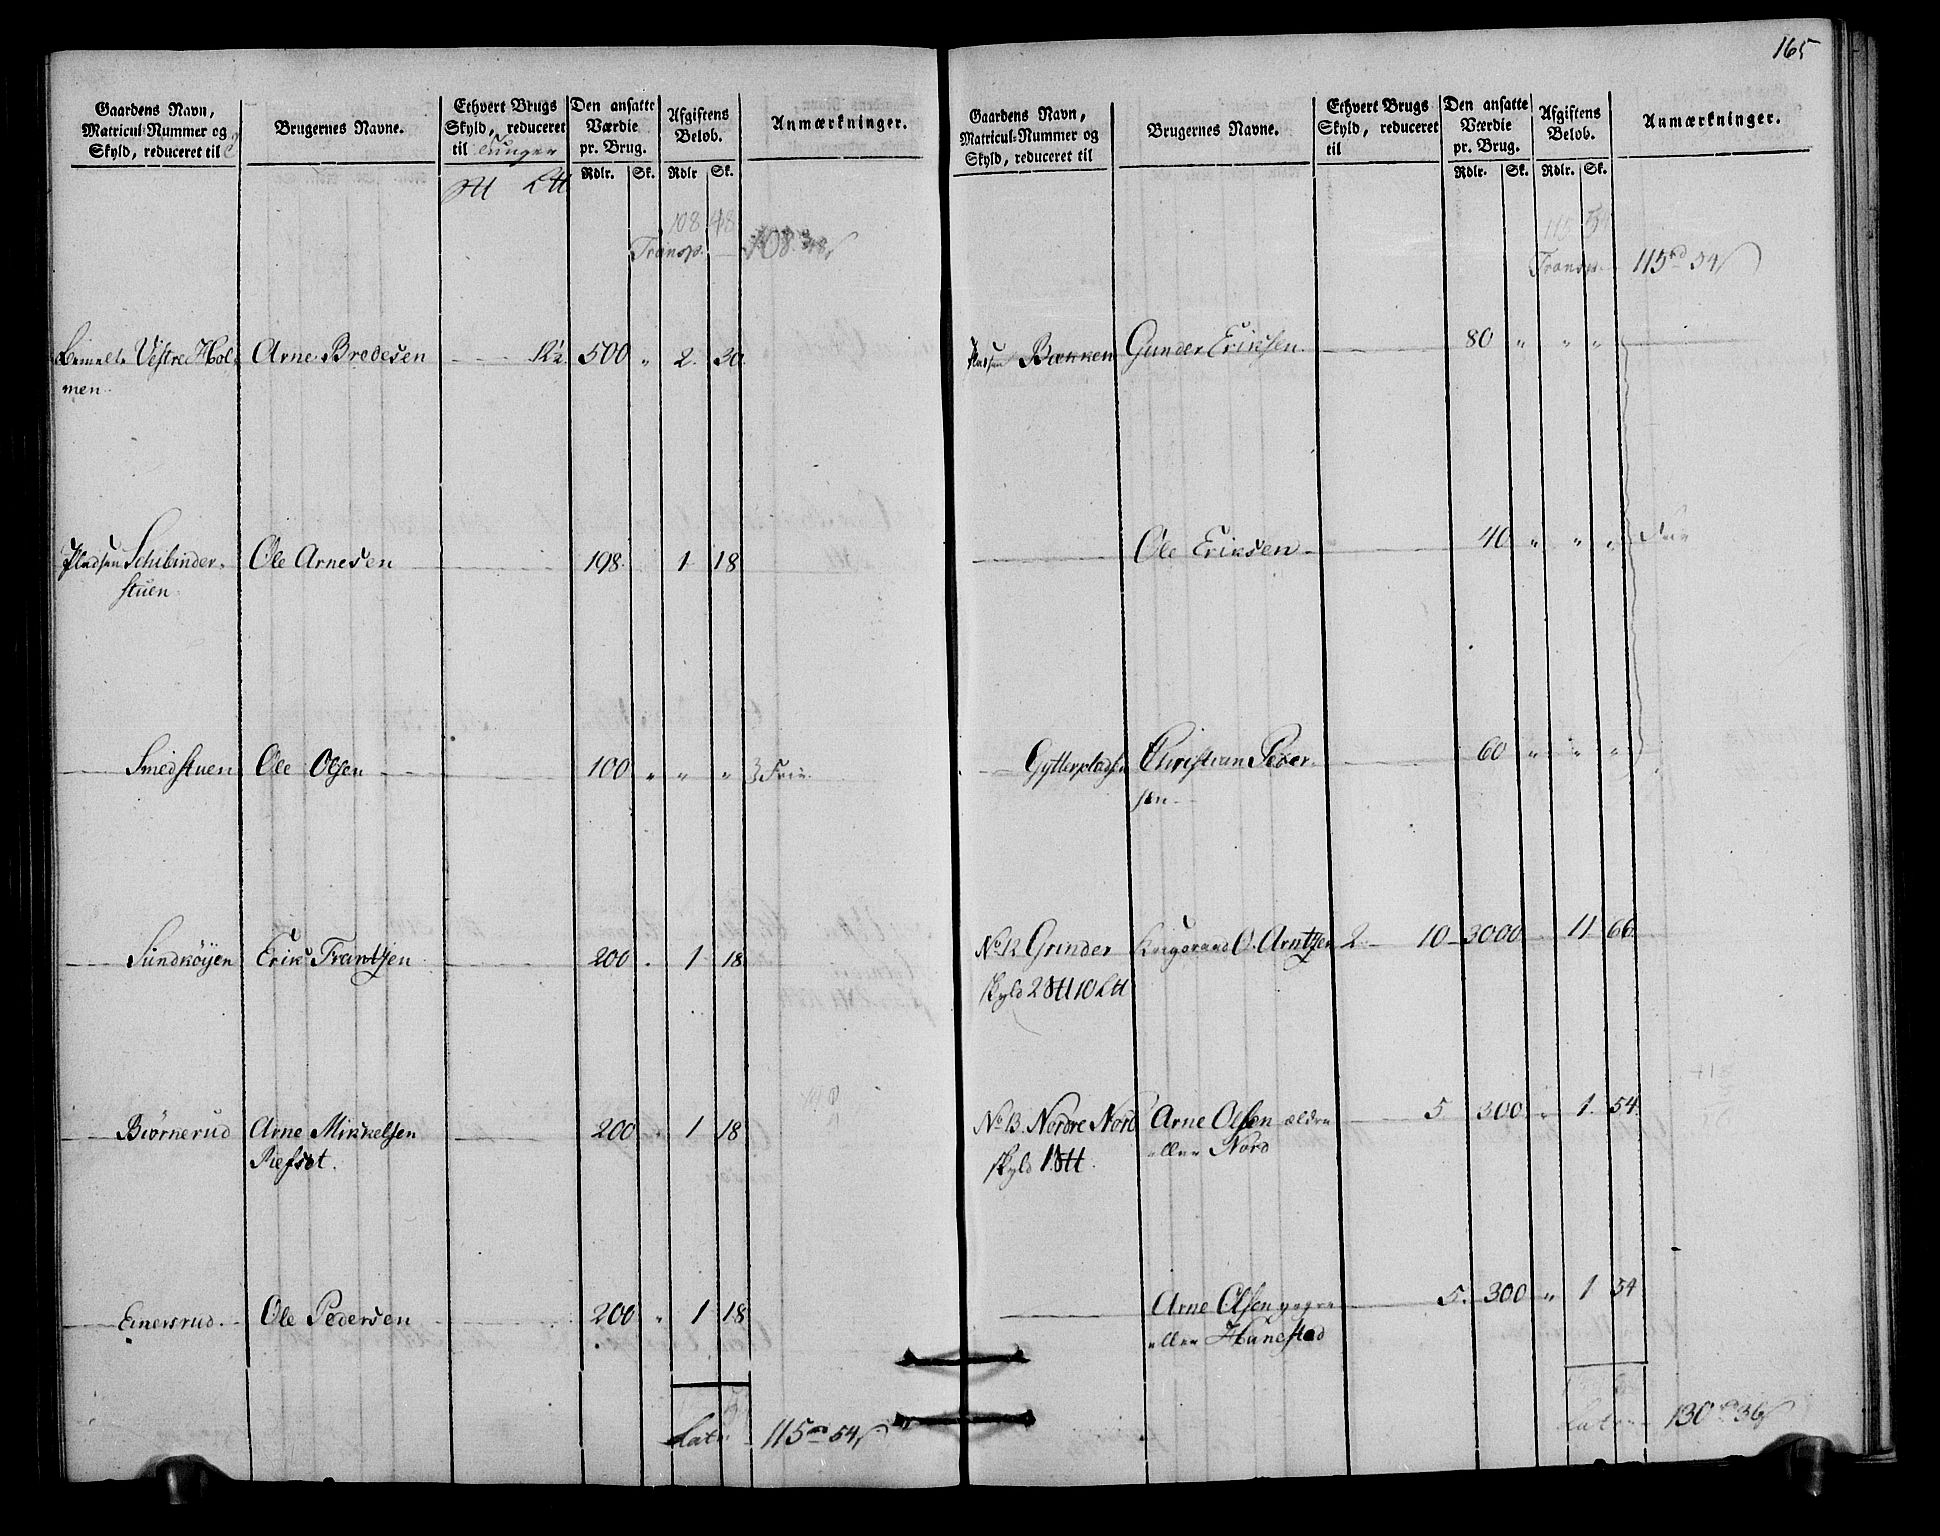 165
Gaardens Navn,
Matricul-Nummer og
Skyld, reduceret til
Brugernes Navne.
Ethvert Brugs
Skyld, reduceret
til Tunger
Den ansatte
Værdie
pr. Brug.
Afgiftens
Beløb.
Anmærkninger.
Rdlr. Sk. Rdlr Sk.
108 48
Transp. 108 48
Vestre Hol-
men. Arne Bredesen 500 " 2. 30.
Pladsen Schibinder-
stuen. Ole Arnesen 198. 1 18
Smedstuen Ole Olsen 100 " " " Frie.
Sundkøyen Erik Frantsen 200 1 18
Biørnerud Arne Mikkelsen 200 " 1 18
Einersrud. Ole Pedersen 200 " 1 18
Lat. 115 rd 54 s
Gaardens Navn,
Matricul-Nummer og
Skyld, reduceret til
Brugernes Navne.
Ethvert Brugs
Skyld, reduceret
til
Den ansatte
Værdie
pr. Brug.
Afgiftens
Beløb.
Anmærkninger.
Rdlr. Sk. Rdlr. Sk.
115 54
Transp. 115 rd 54 s
Pladsen Bækken Gunder Eriksen 80 " " "
Ole Eriksen 40 " " " Frie
Gytterpladsen Christian Peder-
sen 60 " " "
No 12 Grinder O. Arntzen 2 10 3000 11 66
Skyld 2 10
No 13 Nordre Nord Arne Olsen ældre 5 300 " 1. 54.
Skyld 1 eller Nord
Arne Olsen yngre 5. 300 " 1 54
eller Hunestad
Lat. 130 rd 36 s